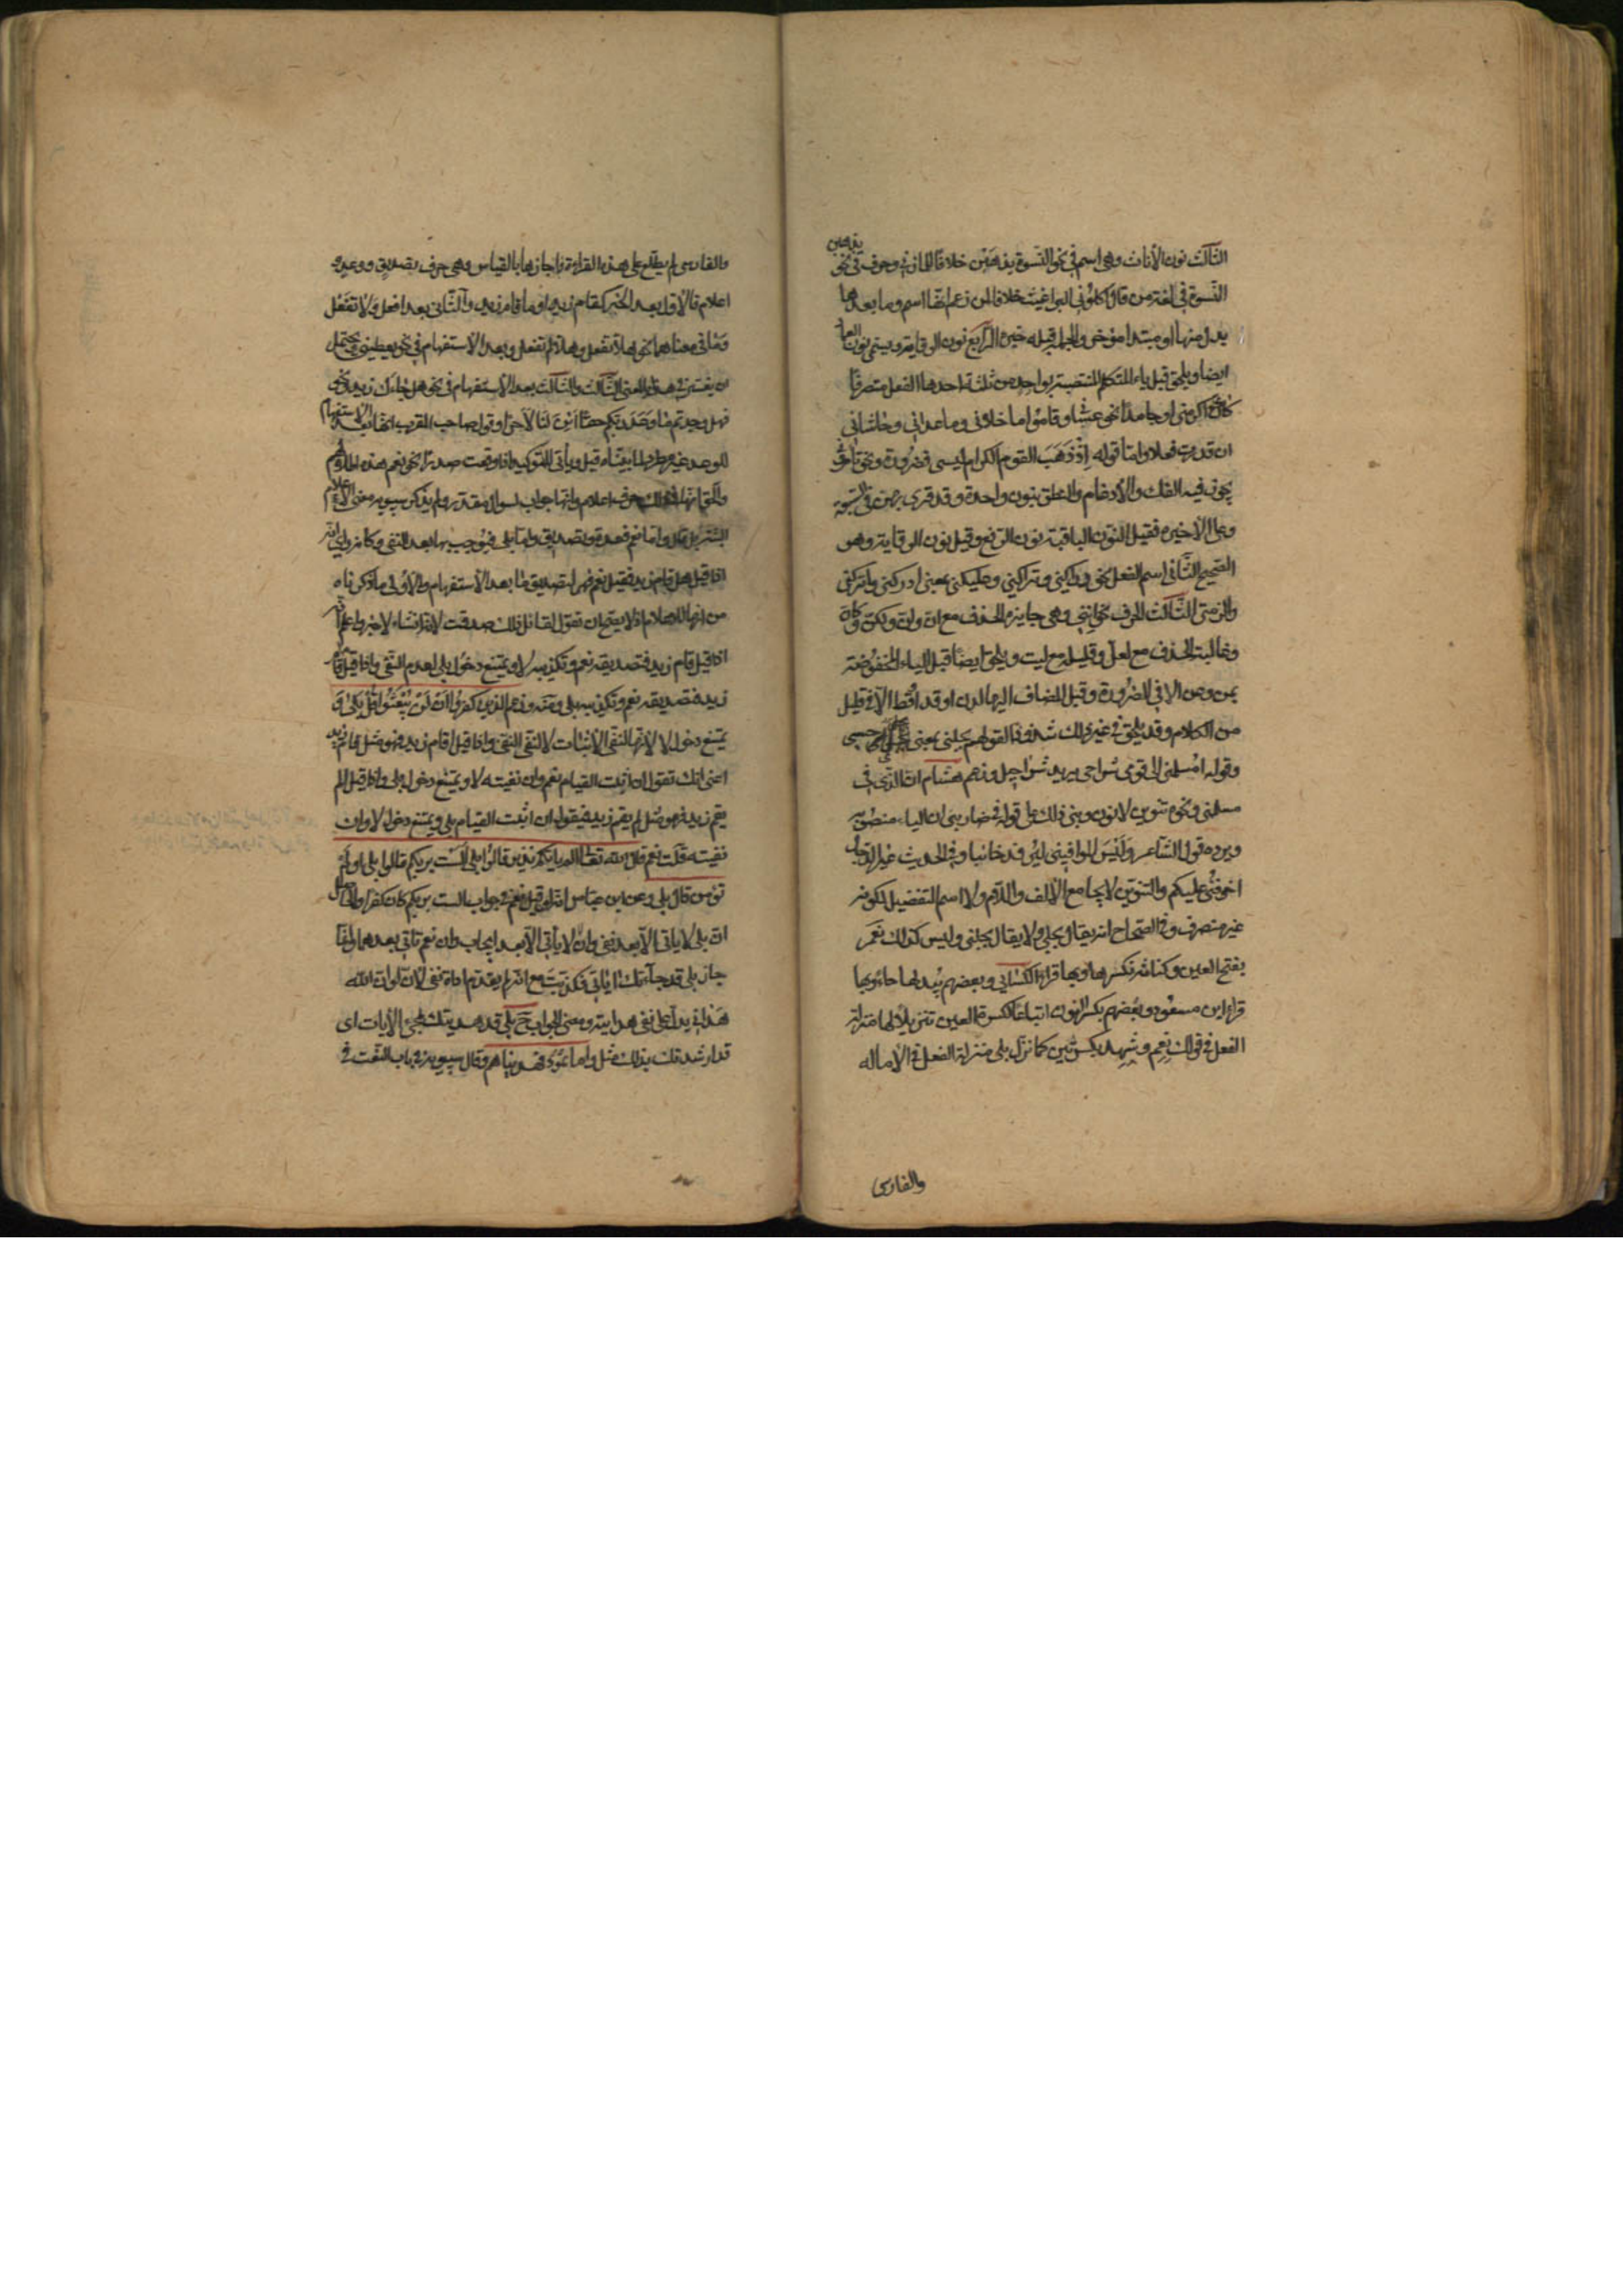 الثالث نون الأناث وهي اسم في نحو النسوة يذهبن خلافا للمازني وحرف في نحو
يذهبن
النسوة في لغة من قال اكلوني البراغيث خلافا لمن زعم انها اسم وما بعدها
بدل منها او مبتدا مؤخر والجملة قبله خبره الرابع نون الوقاية وتسمى نون العماد
ايضا ويلحق قبل ياء المتكلم المنتصبة بواحد من ثلثة احدها الفعل متصرفا
كان نحو اكرمني او جامدا نحو عساني وقاموا ما خلاني وما عداني وحاشاني
ان قدرت فعلا واما قوله اذ ذهب القوم الكرام ليسي فضرورة ونحو تأمرونني
يجوز فيه الفك والأدغام والنطق بنون واحدة وقد قرئ بهن في السبعة
وعلى الأخيرة فقيل النون الباقية نون الرفع وقيل نون الوقاية وهو
الصحيح الثاني اسم الفعل نحو دراكني وتراكني وعليكني بمعنى ادركني واتركني
والزمني الثالث الحرف نحو انني وهي جايزة الحذف مع ان وان ولكن وكان
وغالبة الحذف مع لعل وقليلة مع ليت ويلحق ايضا قبل الياء المخفوضة
بمن وعن الا في الضرورة وقبل المضاف اليها لدن او قد او قط الا في قليل
من الكلام وقد يلحق في غير ذلك شذوذا كقولهم بجلني بمعنى حسبي
وقوله امسلمني الى قومي شراحي يريد شراحيل وزعم هشام ان الذي في
مسلمني ونحوه تنوين لا نون وبنى ذلك على قوله في ضاربني ان الياء منصوبة
ويرده قول الشاعر وليس الموافيني ليرفد خائبا وفي الحديث غير الدجال
اخوفني عليكم والتنوين لا يجامع الألف واللام ولا اسم التفضيل لكونه
غير منصرف وفي الصحاح انه يقال بجلي ولا يقال بجلني وليس كذلك نعم
بفتح العين وكنانة تكسرها وبها قرا الكسائي وبعضهم يبدلها حاء وبها
قرا ابن مسعود وبعضهم بكسر النون اتباعا لكسرة العين تنزيلا لها منزلة
الفعل في قولك نعم وشهد بكسرتين كما نزل بلى منزلة الفعل في الأماله
والفارسي
والفارسي لم يطلع على هذه القراءة واجازها بالقياس وهي حرف تصديق ووعد و
اعلام فالأول بعد الخبر كقام زيد او ما قام زيد والثاني بعد افعل ولا تفعل
وما في معناهما نحو هلا تفعل وهلا لم تفعل وبعد الأستفهام في نحو يعطيني ويحتمل
ان يفسر في هذا بالمعنى الثالث والثالث بعد الأستفهام في نحو هل جاءك زيد ونحو
فهل وجدتم ما وعد ربكم حقا ائن لنا لاجرا وقول صاحب المقرب انها بعد الاستفهام
للوعد غير مطرد لما بيناه قبل ويأتي للتوكيد اذا وقعت صدرا نحو نعم هذه اطلالهم
والحق انها في ذلك حرف اعلام وانها جواب لسوال مقدر ولم يذكر سيبويه معنى الأعلام
البتة بل قال واما نعم فعدة وتصديق واما بلى فيوجب بها بعد النفي وكانه راى انه
اذا قيل هل قام زيد فقيل نعم فهي لتصديق ما بعد الأستفهام والأولى ما ذكرناه
من انها للاعلام اذ لا يصح ان تقول لقائل ذلك صدقت لانه انشاء لا خبر واعلم انه
اذا قيل قام زيد فتصديقه نعم وتكذيبه لا ويمتنع دخول بلى لعدم النفي واذا قيل ما قام
زيد فتصديقه نعم وتكذيبه بلى ومنه وزعم الذين كفروا ان لن يبعثوا قل بلى و
يمتنع دخول لا لانها لنفي الأثبات لا لنفي النفي واذا قيل اقام زيد فهو مثل قام زيد
اعني انك تقول ان اثبت القيام نعم وان نفيته لا ويمتنع دخول بلى واذا قيل الم
يقم زيد فهو مثل لم يقم زيد فيقول ان اثبت القيام بلى ويمتنع دخول لا وان
نفيته قلت نعم قال الله تعالى الم يأتكم نذير قالوا بلى الست بربكم قالوا بلى او لم
تؤمن قال بلى وعن ابن عباس انه لو قيل نعم في جواب الست بربكم كان كفرا والحاصل
ان بلى لا ياتي الا بعد نفي وان لا يأتي الا بعد ايجاب وان نعم تاتي بعدهما وانما
جاز بلى قد جاءتك اياتي فكذبت مع انه لم يقدم اداة نفي لان لو ان الله
هداني يدل على نفي هدايته ومعنى الجواب ح بلى قد هديتك بمجيء الأيات اى
قد ارشدتك بذلك مثل واما ثمود فهديناهم وقال سيبويه في باب النعت في